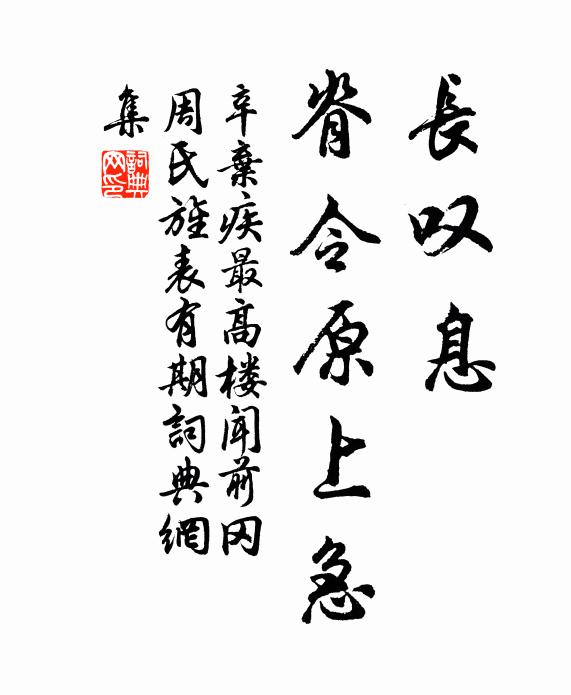 長叹息
脊令原上急
辛棄疾最高楼闻前冈
周氏旌表有期詞典網
集
詞典
网印